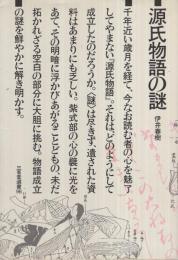 源氏物語の謎
伊井春樹
千年近い歳月を経て、今なお読む者の心を魅了
してやまない『源氏物語』。それは、どのようにして
成立したのだろうか。〈謎〉は尽きず、遺された資
料はあまりにも乏しい。紫式部の心の襞に光を
あて、その明暗に浮かびあがることどもの、未だ
拓かれざる空白の部分に大胆に挑む。物語成立
の謎を鮮やかに解き明かす。
三省堂選書98